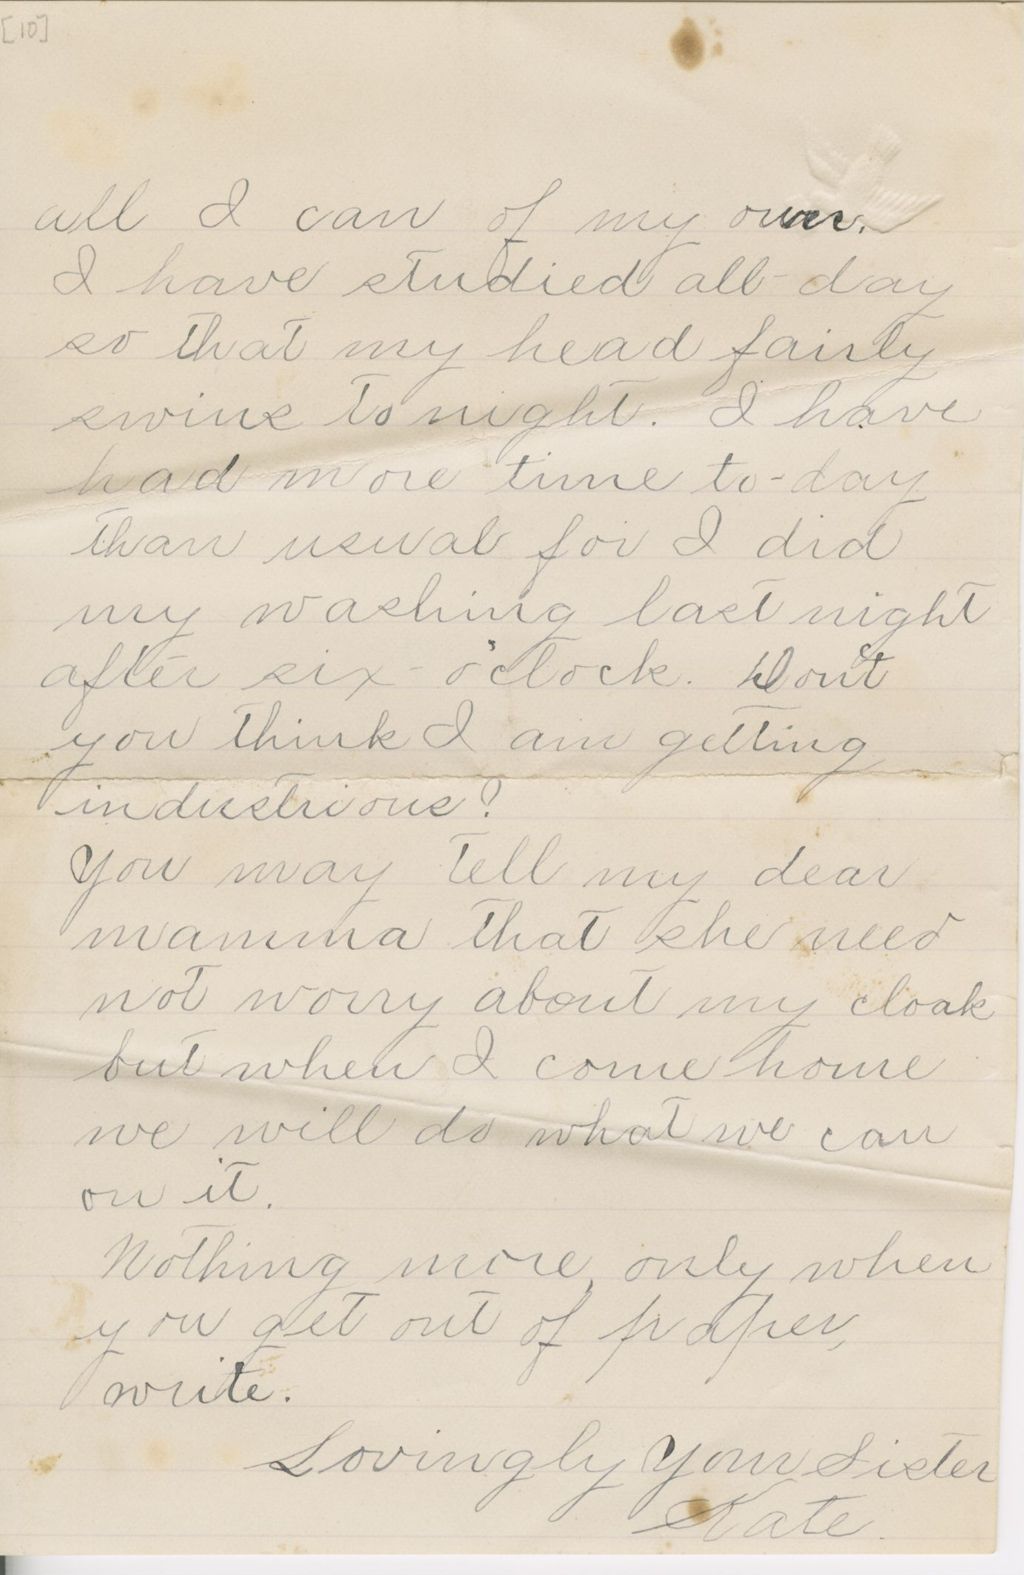 [10]
all I can of my own.
I have studied all-day
so that my head fairly
swims to night. I have
had more time to-day
than usual for I did
my washing last night
after six-o'clock. Don't
you think I am getting
industrious?
You may tell my dear
mamma that she need
not worry about my cloak
but when I come home
we will do what we can
on it.
Nothing more, only when
you get out of paper,
write.
Lovingly Your Sister
Kate.